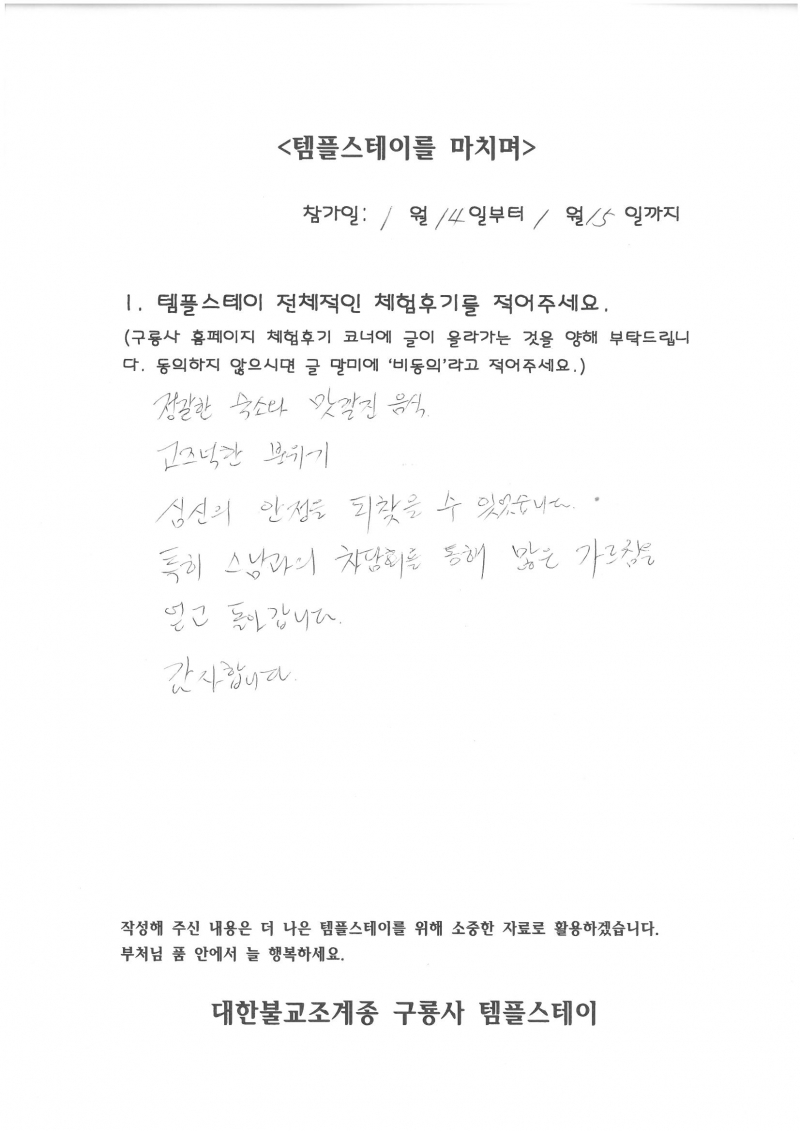 <템플스테이를 마치며>
참가일: 1 월 14 일부터 1 월 15 일까지
1. 템플스테이 전체적인 체험후기를 적어주세요.
(구룡사 홈페이지 체험후기 코너에 글이 올라가는 것을 양해 부탁드립니
다. 동의하지 않으시면 글 말미에 '비동의'라고 적어주세요.)
정갈한 숙소와 맛갈진 음식.
고즈넉한 분위기
심신의 안정을 되찾을 수 있었습니다.
특히 스님과의 차담회를 통해 많은 가르침을
얻고 돌아갑니다.
감사합니다.
작성해 주신 내용은 더 나은 템플스테이를 위해 소중한 자료로 활용하겠습니다.
부처님 품 안에서 늘 행복하세요.
대한불교조계종 구룡사 템플스테이